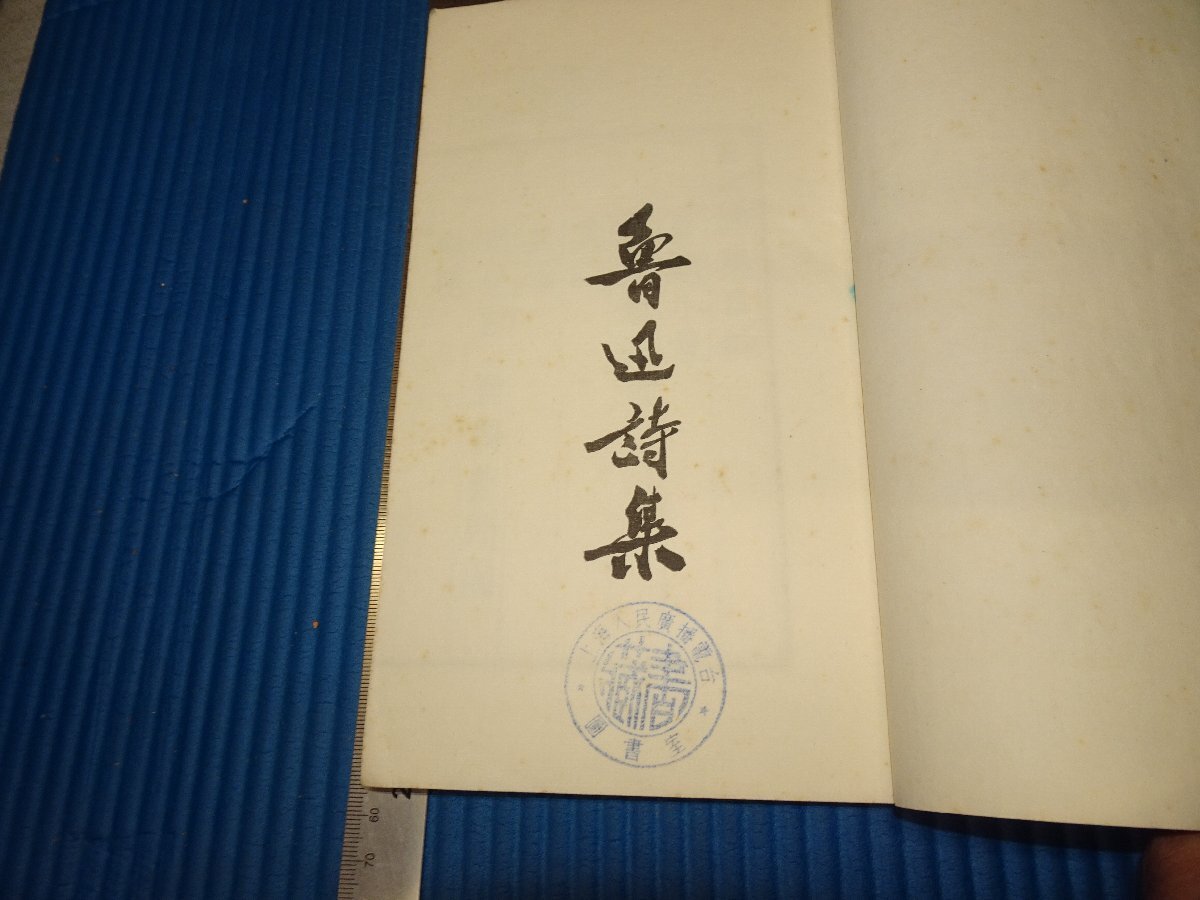 魯迅詩集
上海人民廣播電台
藏書
圖書室
60
70
2